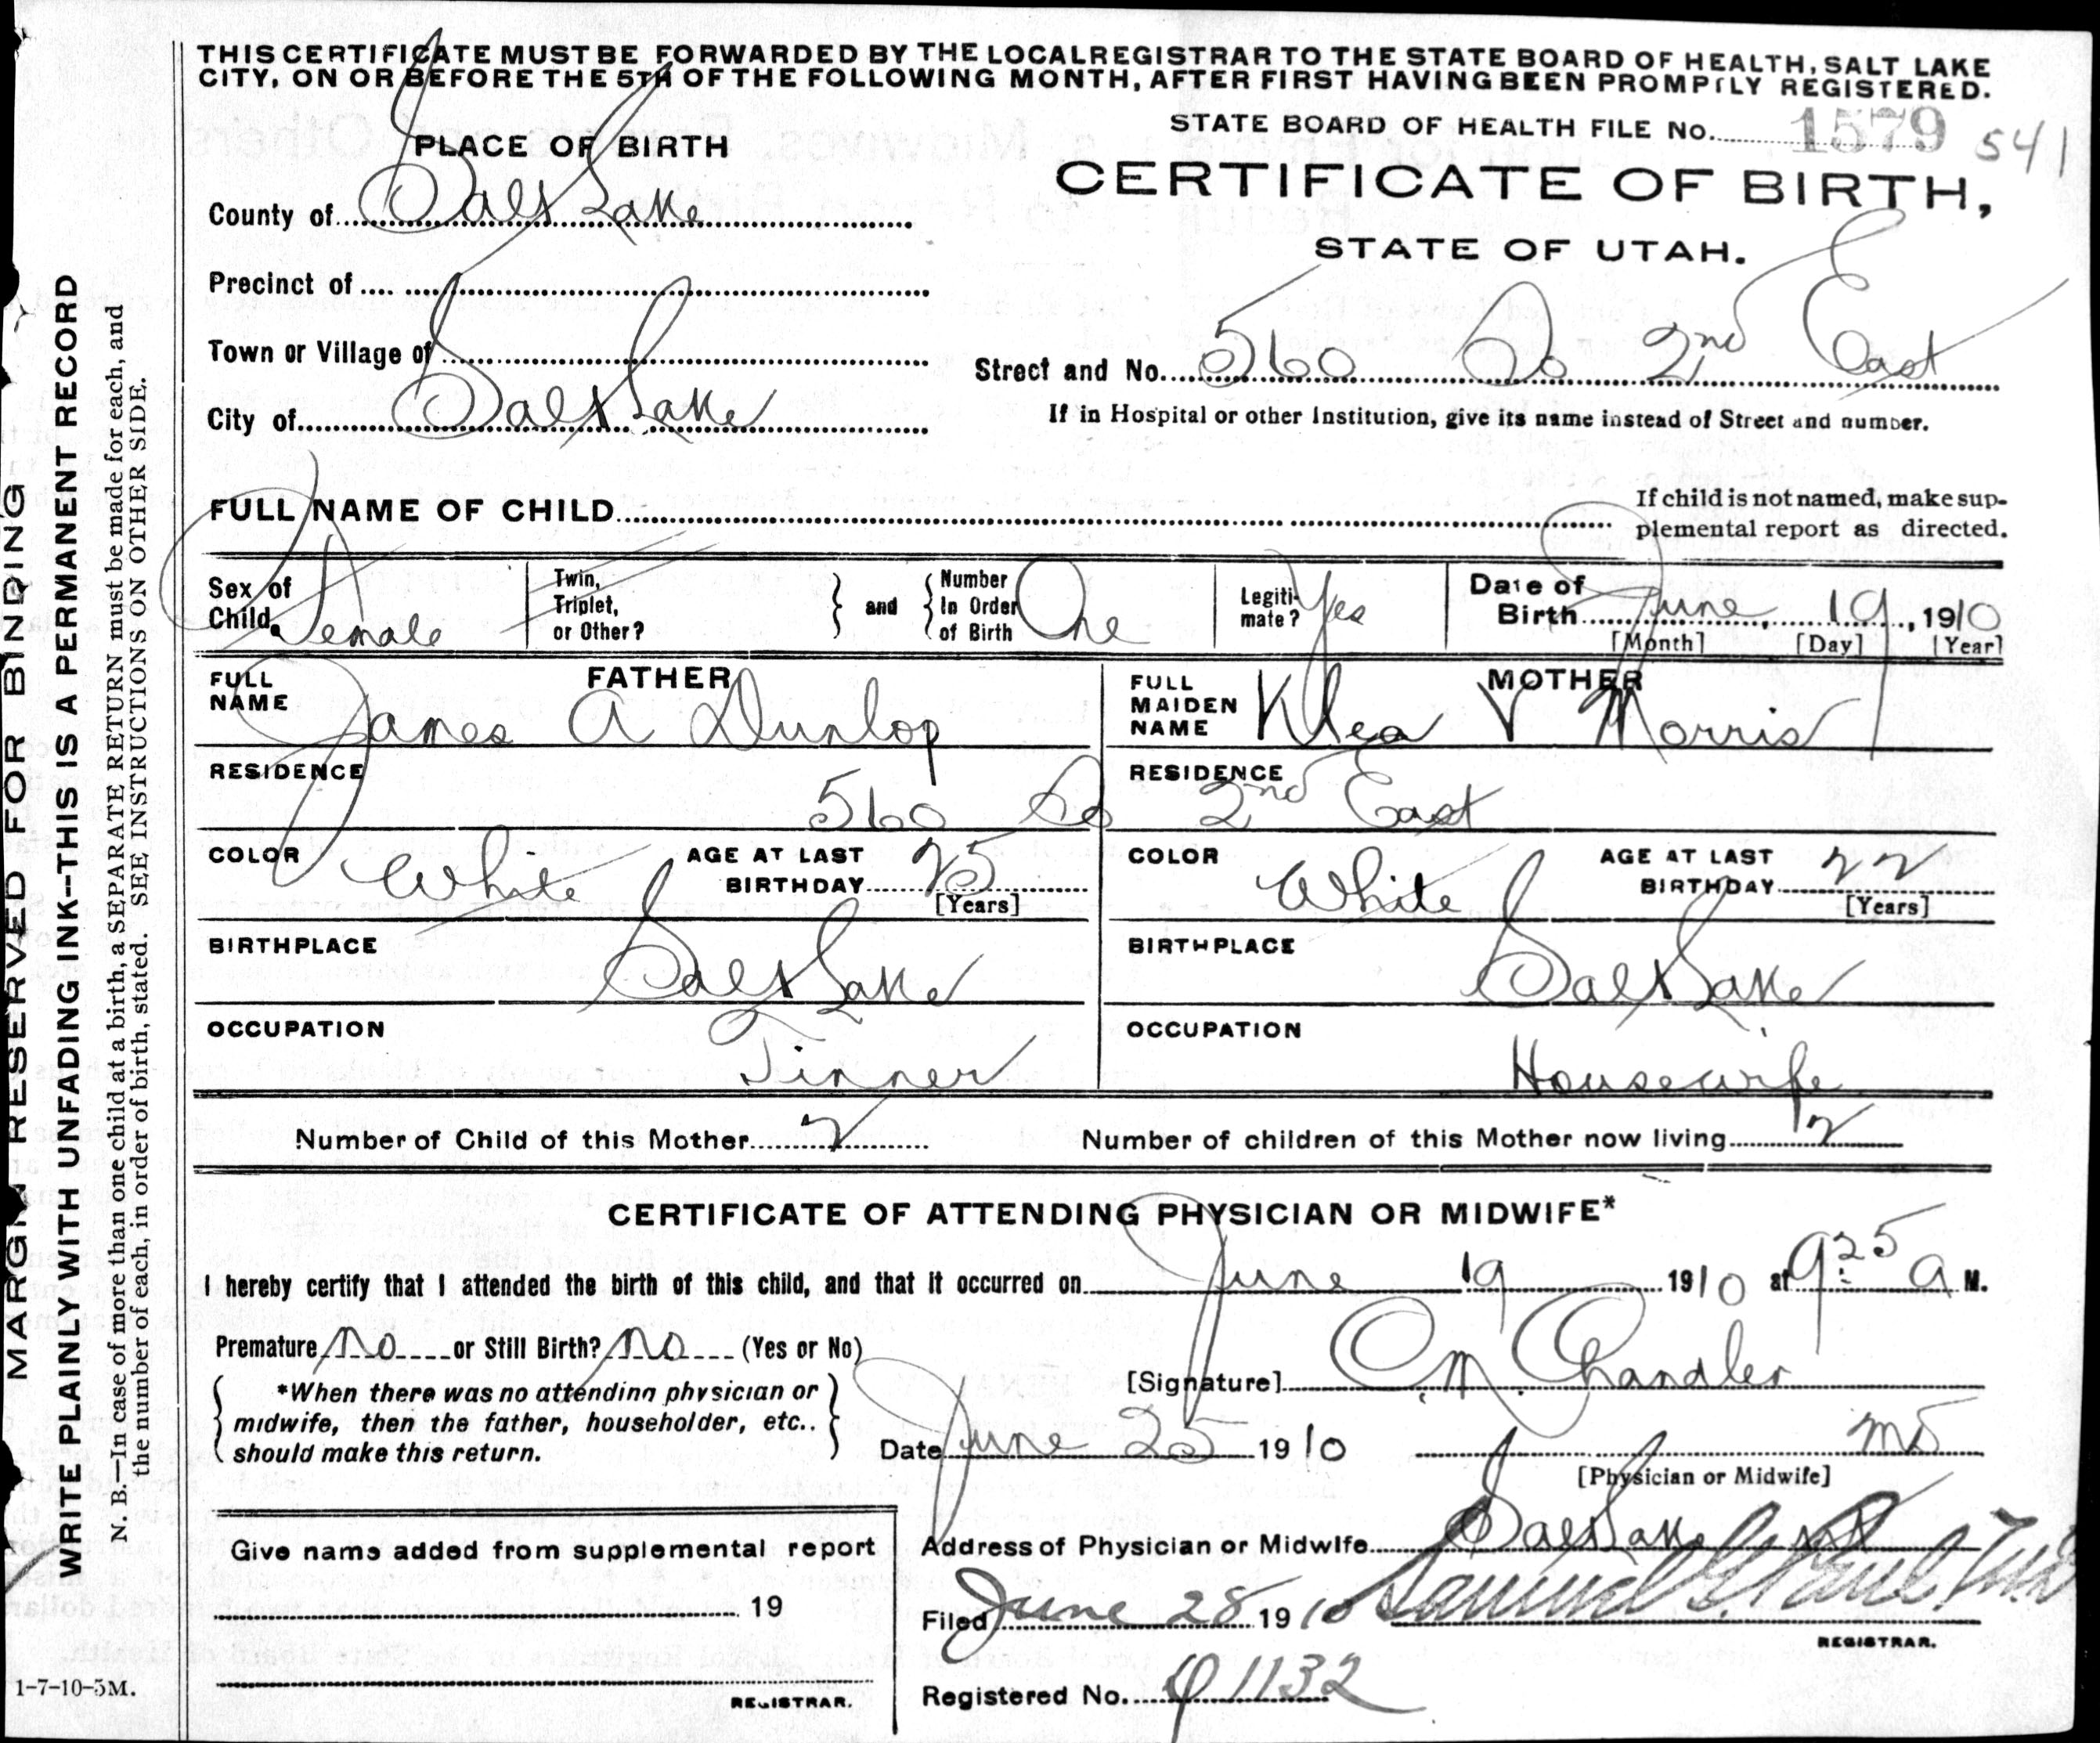 THIS CERTIFICATE MUST BE FORWARDED BY THE LOCAL REGISTRAR TO THE STATE BOARD OF HEALTH, SALT LAKE
CITY, ON OR BEFORE THE 5TH OF THE FOLLOWING MONTH, AFTER FIRST HAVING BEEN PROMPTLY REGISTERED.
STATE BOARD OF HEALTH FILE No. 1579 541
PLACE OF BIRTH
CERTIFICATE OF BIRTH,
County of Salt Lake
STATE OF UTAH.
Precinct of
Town or Village of
Street and No. 560 So 2nd East
City of Salt Lake
If in Hospital or other Institution, give its name instead of Street and number.
FULL NAME OF CHILD
If child is not named, make sup-
plemental report as directed.
Sex of Child. Female
Twin, Triplet, or Other?
and
Number In Order of Birth One
Legiti-mate? Yes
Date of Birth June, 19, 1910
[Month] [Day] [Year]
FATHER
FULL NAME James A Dunlop
MOTHER
FULL MAIDEN NAME Klea V Morris
RESIDENCE RESIDENCE
560 So 2nd East
COLOR White AGE AT LAST BIRTHDAY 25 [Years]
COLOR White AGE AT LAST BIRTHDAY 22 [Years]
BIRTHPLACE Salt Lake
BIRTHPLACE Salt Lake
OCCUPATION Tinner
OCCUPATION Housewife
Number of Child of this Mother 2
Number of children of this Mother now living 2
CERTIFICATE OF ATTENDING PHYSICIAN OR MIDWIFE*
I hereby certify that I attended the birth of this child, and that it occurred on June 19 1910 at 9:25 a M.
Premature no or Still Birth? no (Yes or No)
[Signature] C. M. Chandler
*When there was no attending physician or
midwife, then the father, householder, etc..
should make this return.
Date June 25 1910
MD
[Physician or Midwife]
Address of Physician or Midwife Salt Lake
Give name added from supplemental report
19
REGISTRAR.
Filed June 28 1910 Samuel G. Paul, M.D.
REGISTRAR.
Registered No. 1132
1-7-10-5M.
MARGIN RESERVED FOR BINDING
WRITE PLAINLY WITH UNFADING INK--THIS IS A PERMANENT RECORD
N. B.—In case of more than one child at a birth, a SEPARATE RETURN must be made for each, and
the number of each, in order of birth, stated. SEE INSTRUCTIONS ON OTHER SIDE.